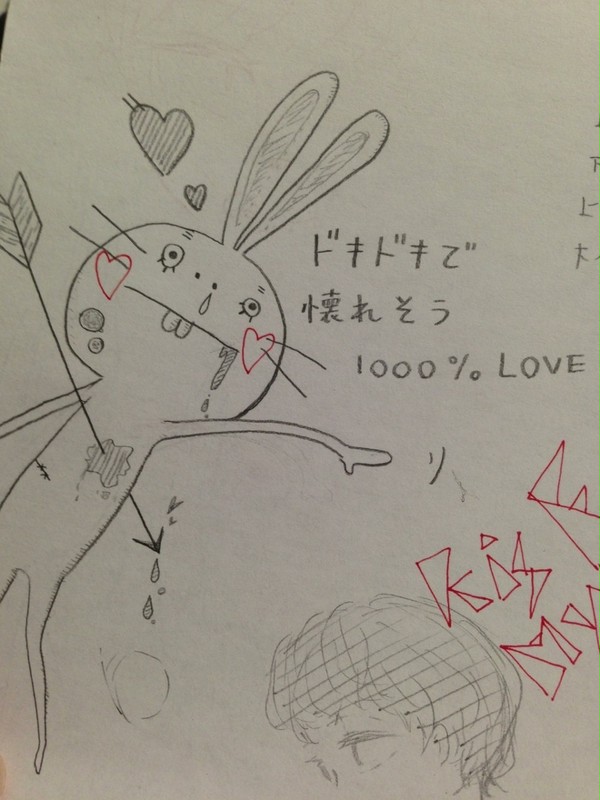 ドキドキで
懐れそう
1000% LOVE
リ
Kis
My